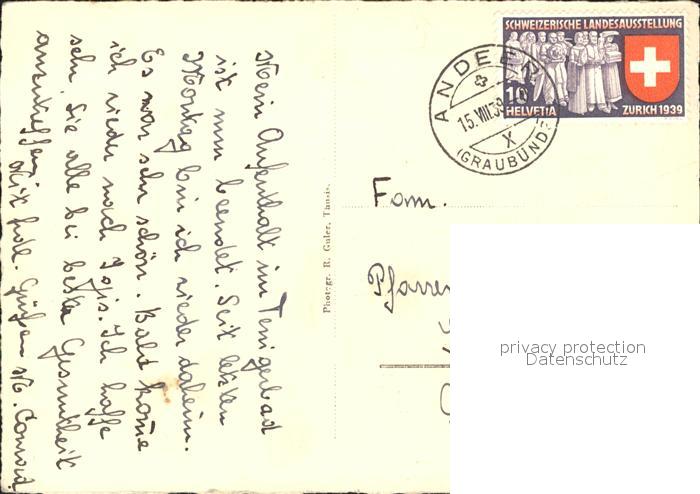 Mein Aufenthalt im Tenigerbad
ist nun beendet. Seit letzten
Montag bin ich wieder daheim.
Es war sehr schön. Bald komme
ich wieder nach Igis. Ich hoffe
sehr, Sie alle bei bester Gesundheit
anzutreffen.
Mit frdl. Grüßen M. Conrad.
Photogr. R. Guler, Thusis.
SCHWEIZERISCHE LANDESAUSSTELLUNG
10
HELVETIA ZURICH 1939
ANDEER
15. VIII. 39
X
(GRAUBÜND.)
Fam.
privacy protection
Datenschutz